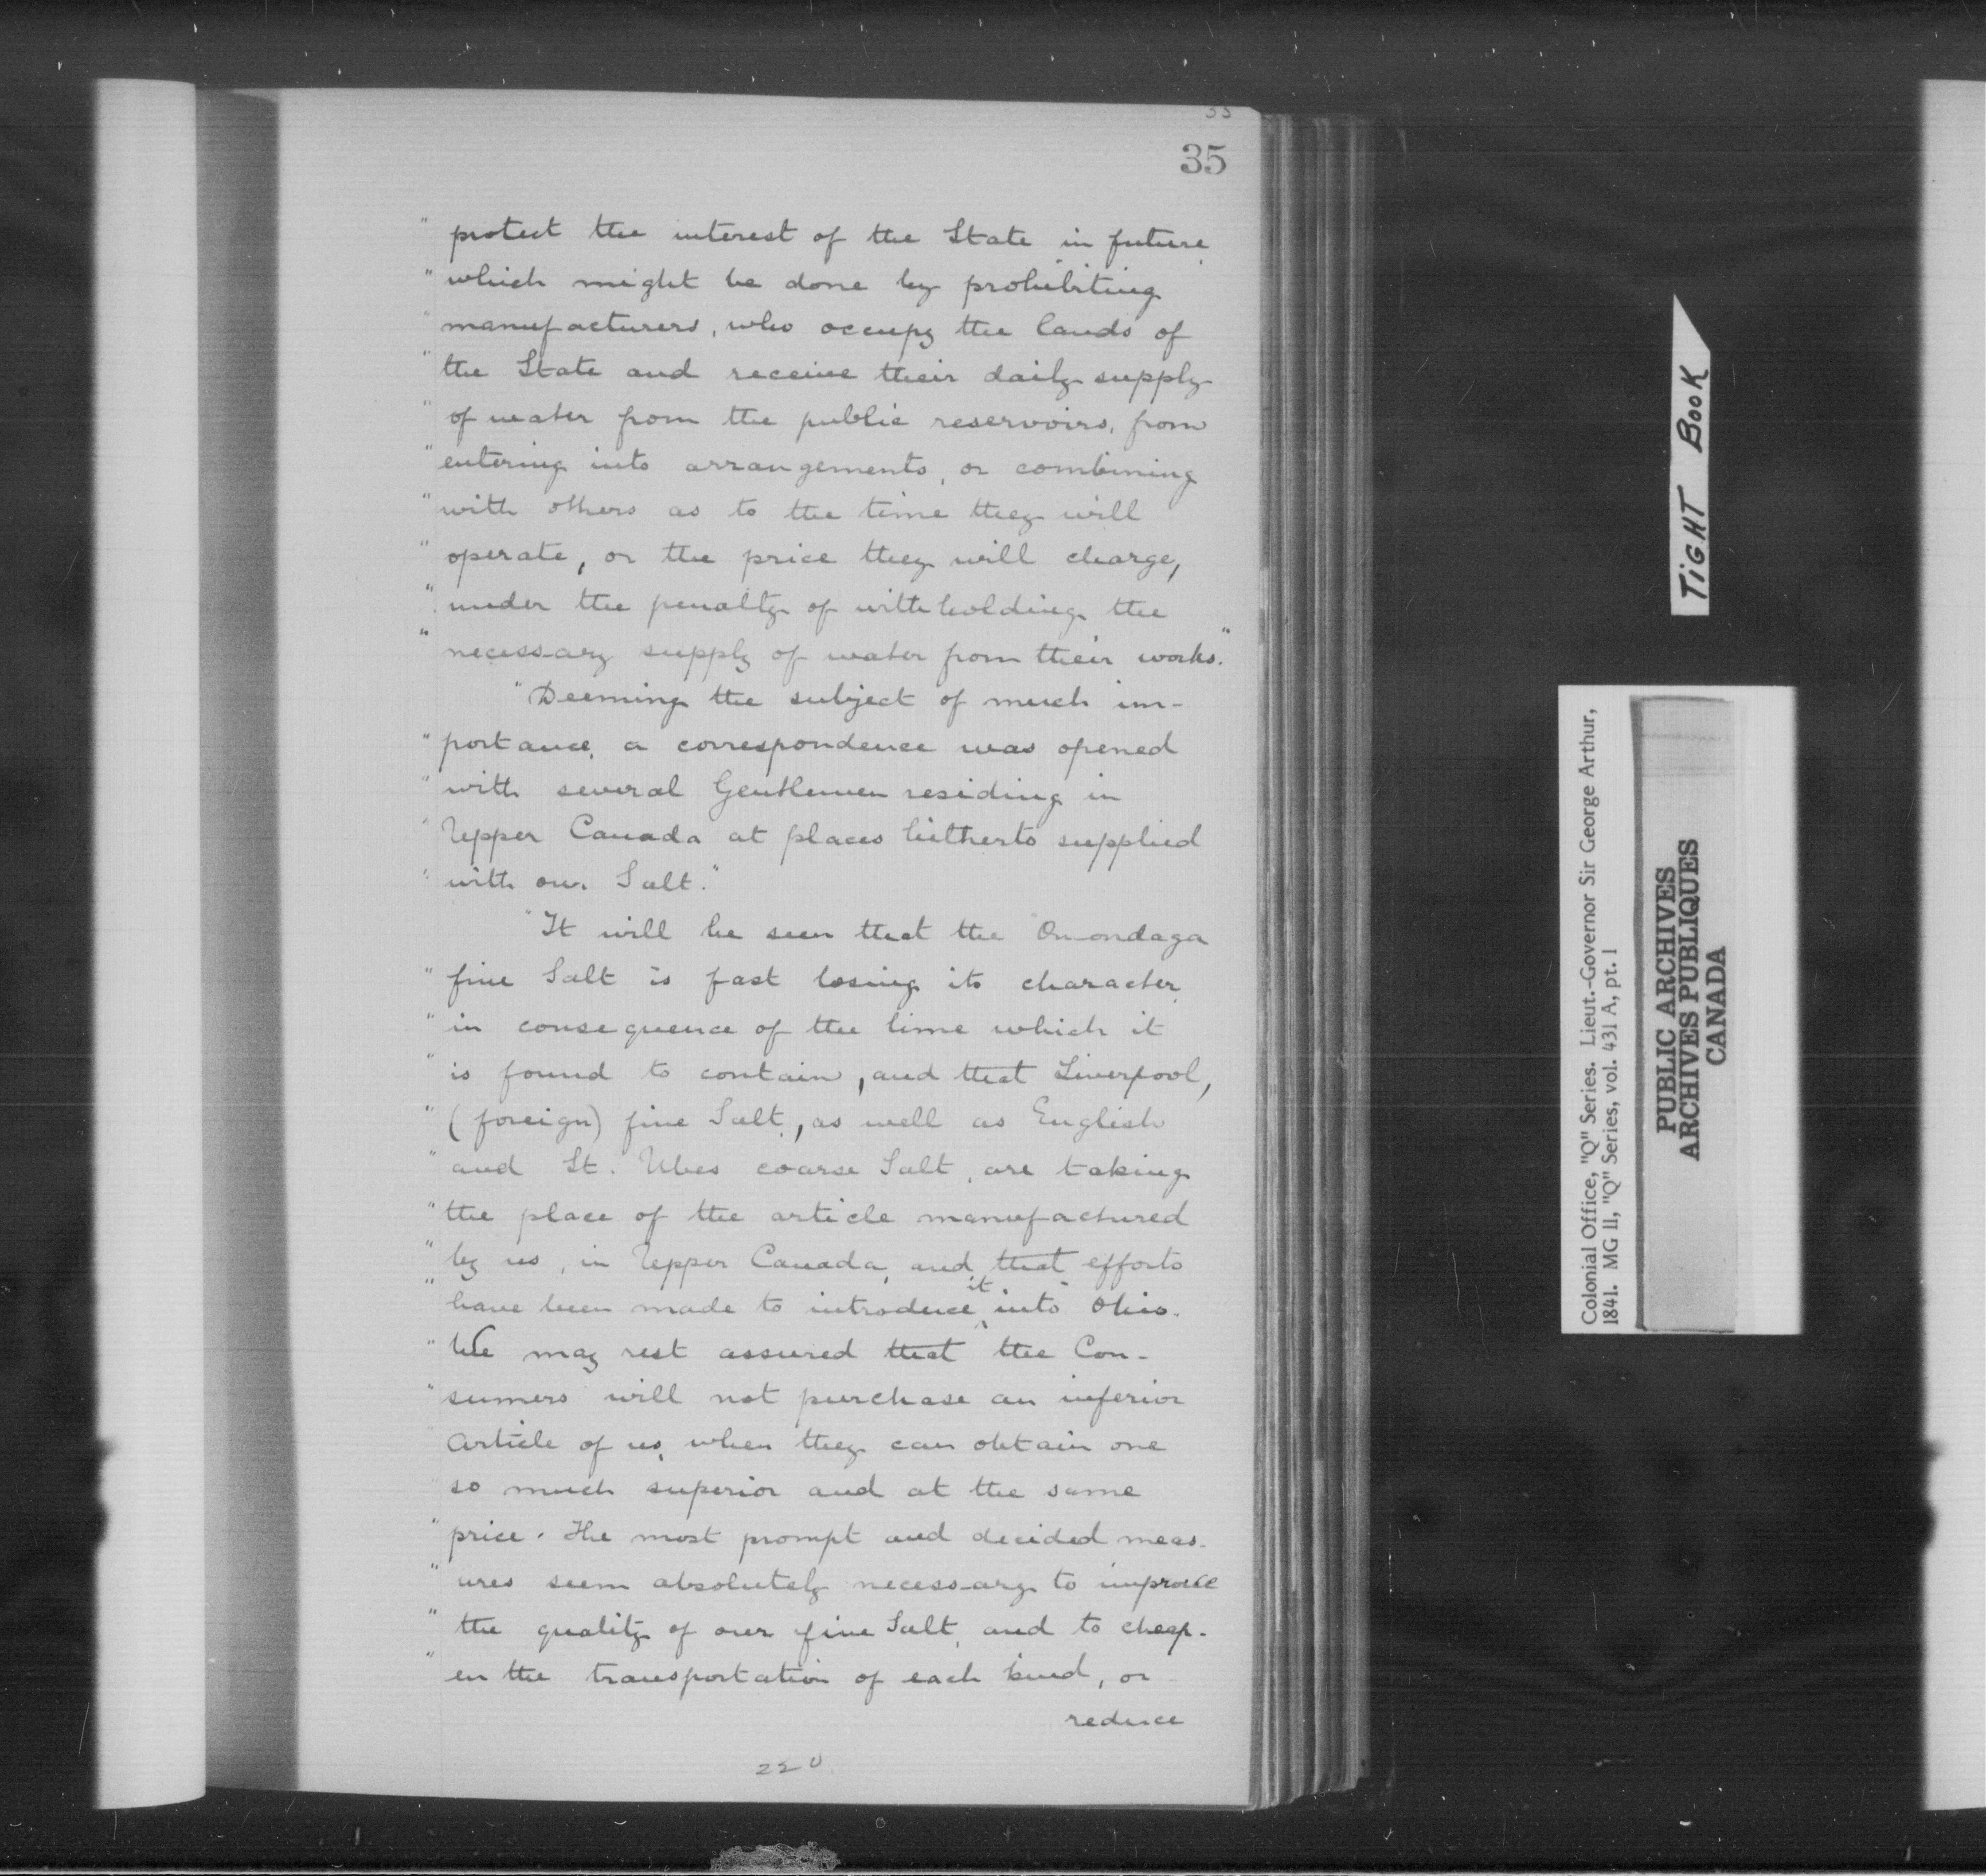 35
35
" protect the interest of the State in future,
" which might be done by prohibiting
" manufacturers, who occupy the lands of
" the State and receive their daily supply
" of water from the public reservoirs, from
" entering into arrangements, or combining
" with others as to the time they will
" operate, or the price they will charge,
" under the penalty of withholding the
" necessary supply of water from their works."
"Deeming the subject of much im-
" portance, a correspondence was opened
" with several Gentlemen residing in
" Upper Canada at places hitherto supplied
" with our Salt."
"It will be seen that the Onondaga
" fine Salt is fast losing its character,
" in consequence of the lime which it
" is found to contain, and that Liverpool,
" (foreign) fine Salt, as well as English
" and St. Ubes coarse Salt, are taking
" the place of the article manufactured
" by us, in Upper Canada, and that efforts
" have been made to introduce it into Ohio.
" We may rest assured that the Con-
" sumers will not purchase an inferior
Article of us, when they can obtain one
so much superior and at the same
" price. The most prompt and decided meas-
" ures seem absolutely necessary to improve
" the quality of our fine Salt, and to cheap-
" en the transportation of each kind, or
reduce
220
TIGHT BOOK
Colonial Office, "Q" Series. Lieut.-Governor Sir George Arthur,
1841. MG 11, "Q" Series, vol. 431 A, pt. 1
PUBLIC ARCHIVES
ARCHIVES PUBLIQUES
CANADA